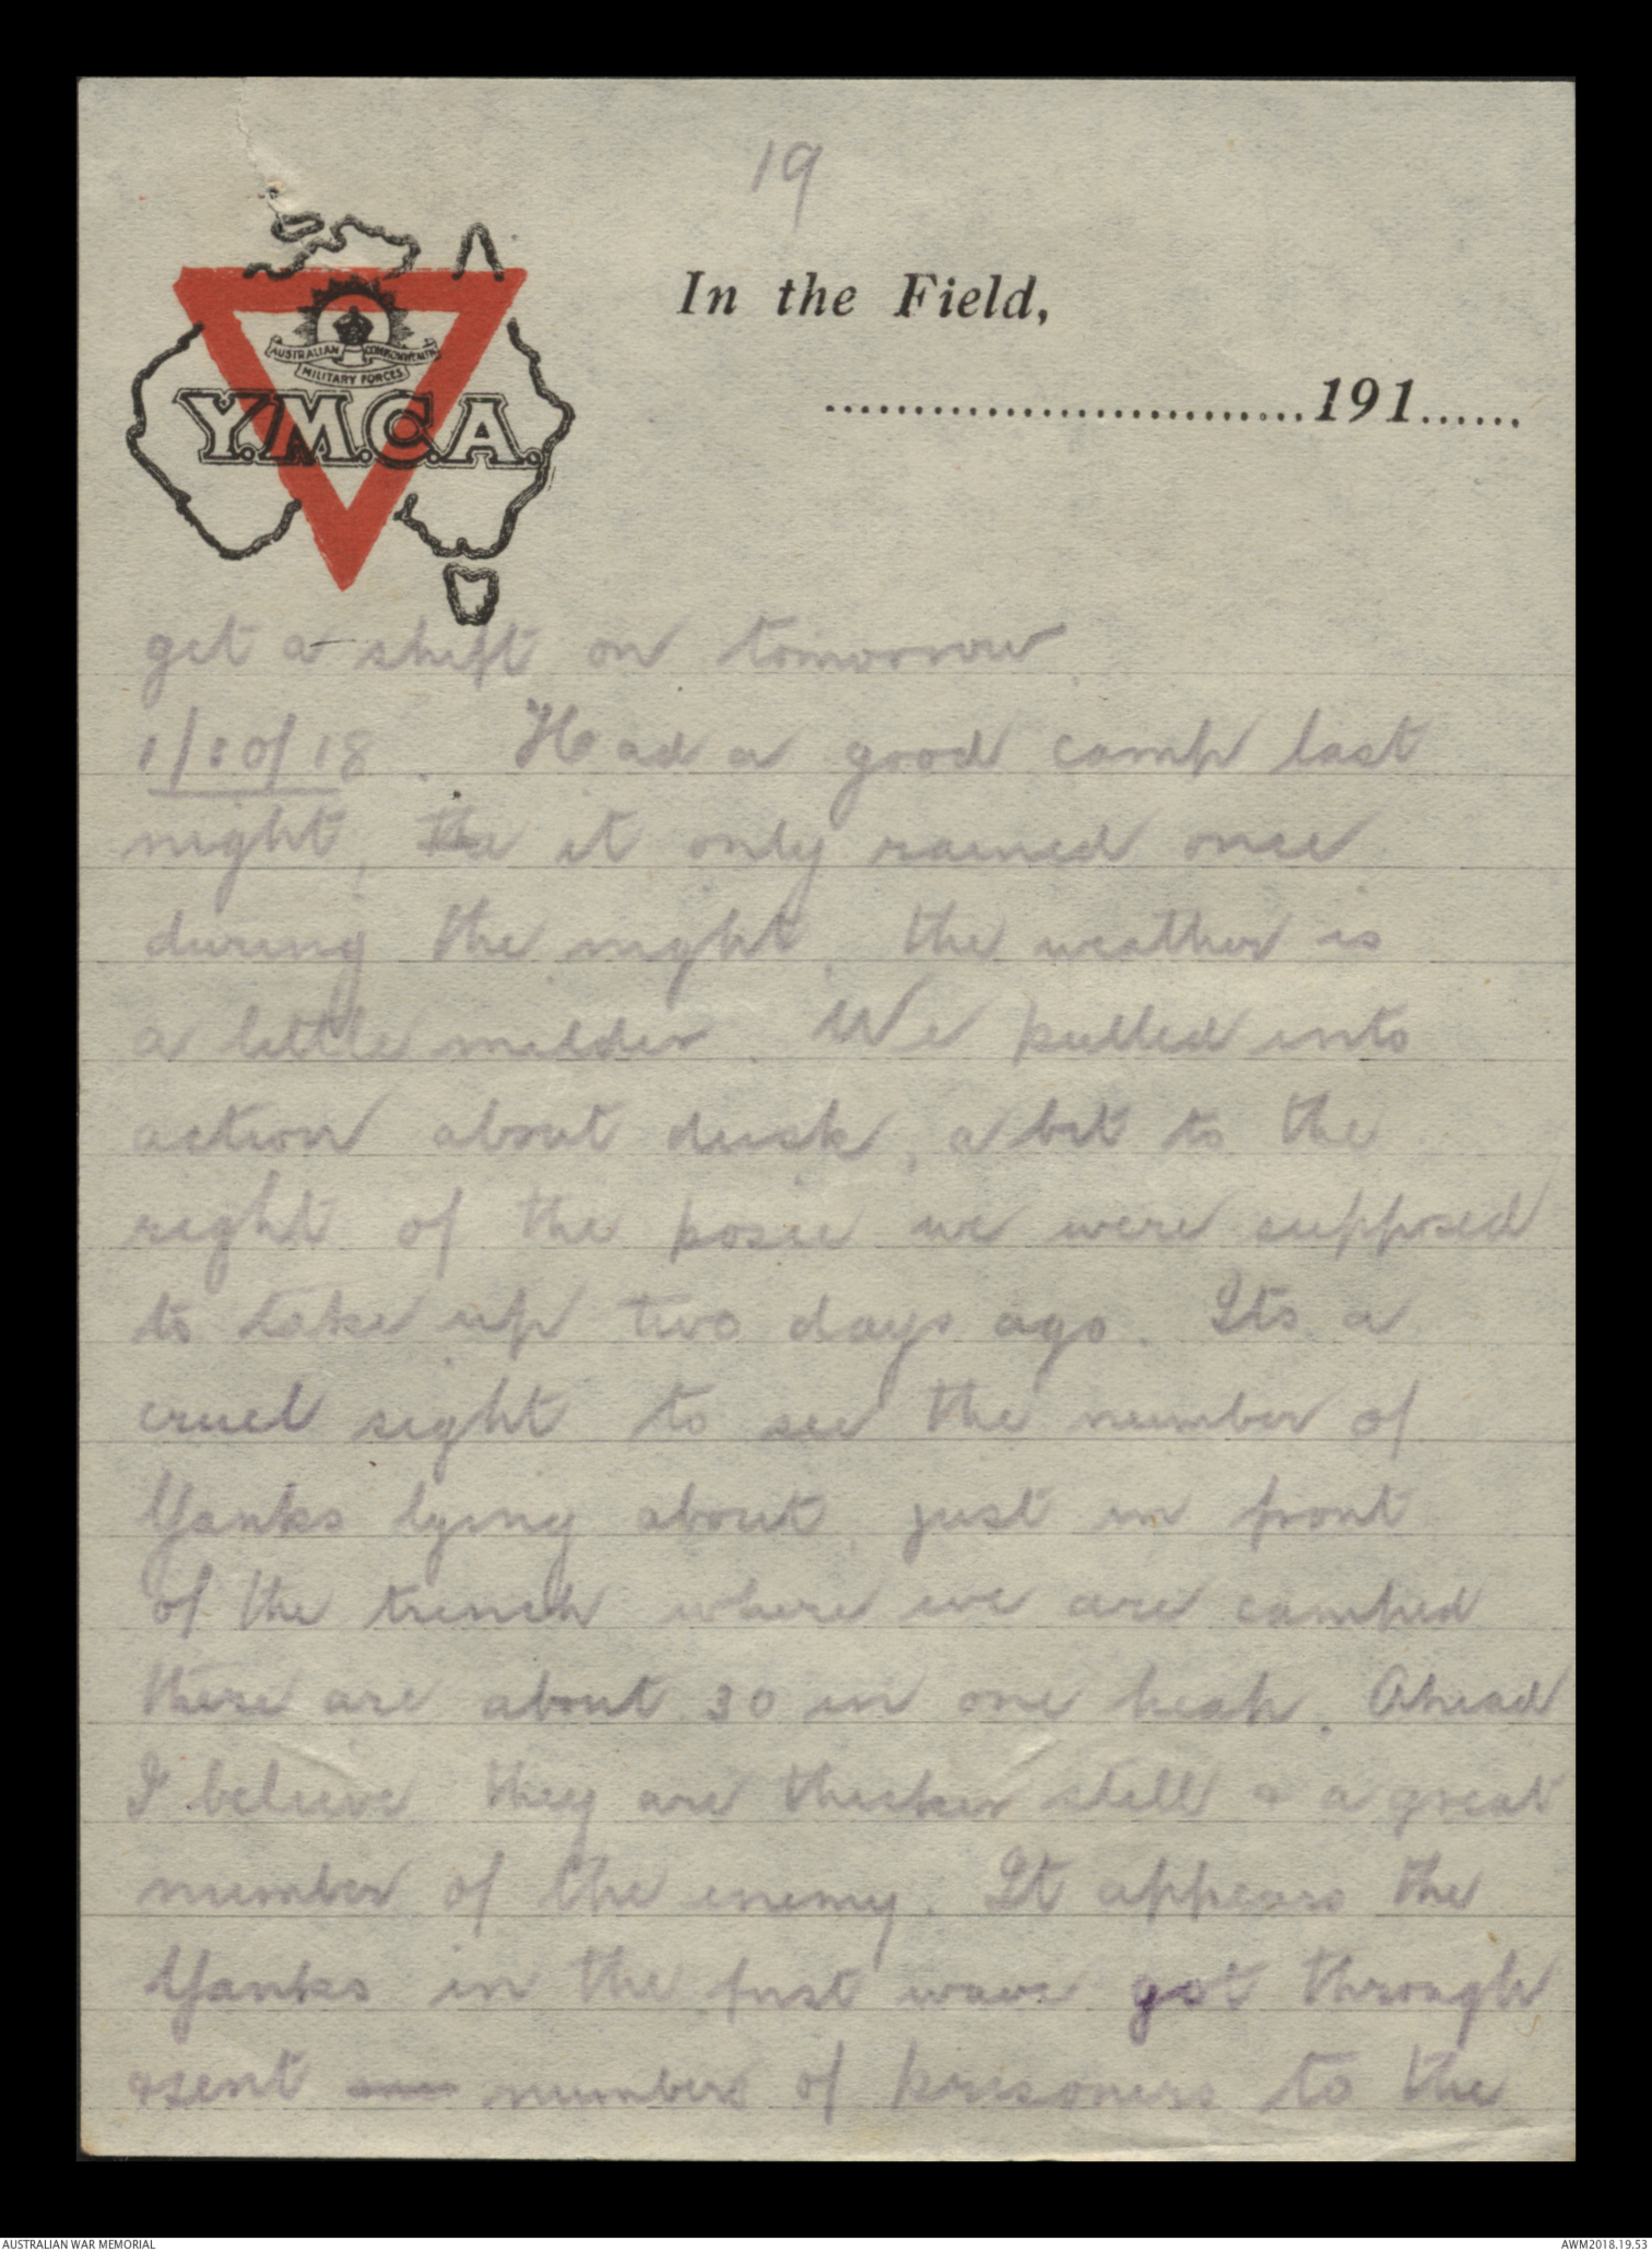 19
AUSTRALIAN COMMONWEALTH
MILITARY FORCES
Y.M.C.A.
In the Field,
..............................191......
get a shift on tomorrow
1/10/18. Had a good camp last
night, the it only rained once
during the night, the weather is
a little milder. We pulled into
action about dusk, a bit to the
right of the posie we were supposed
to take up two days ago. Its a
cruel sight to see the number of
Yanks lying about, just in front
of the trench where we are camped
there are about 30 in one heap. Ahead
I believe they are thicker still & a great
number of the enemy. It appears the
Yanks in the first wave got through
& sent numbers of prisoners to the
AUSTRALIAN WAR MEMORIAL
AWM2018.19.53